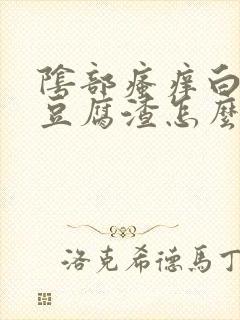 陰部瘙痒白
豆腐渣怎麼
洛克希德馬丁